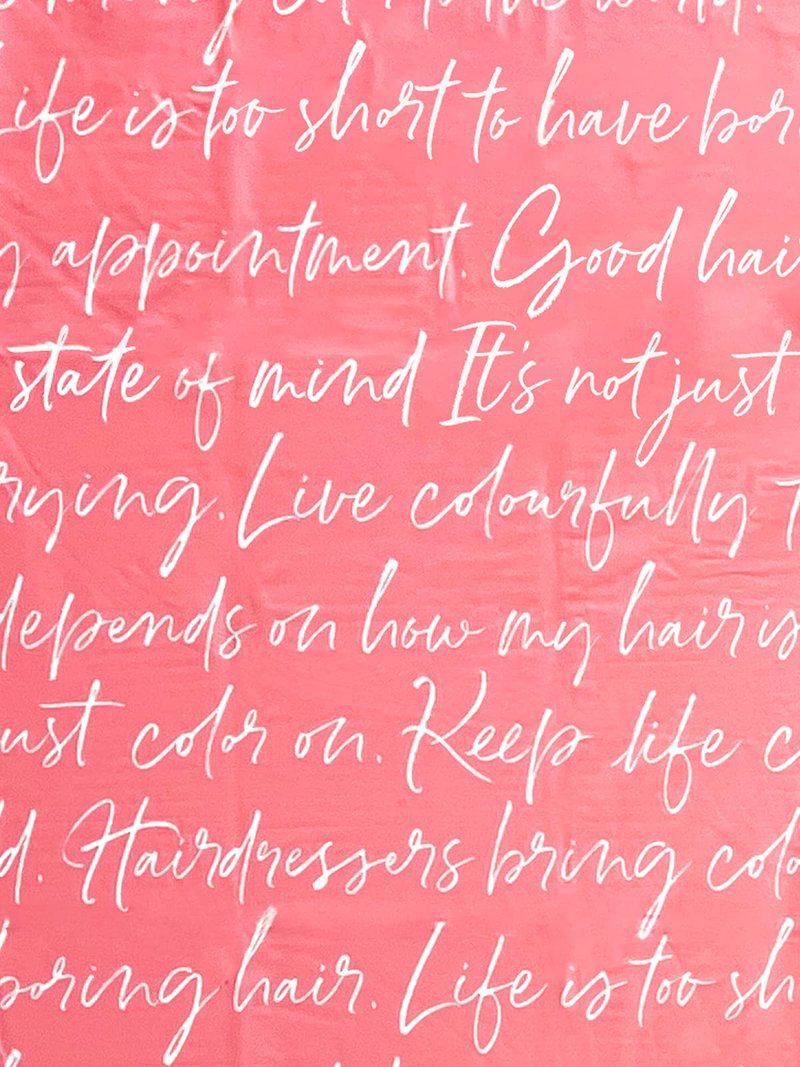 color to the world.
Life is too short to have bor
y appointment. Good hai
state of mind It's not just
rying. Live colourfully T
depends on how my hair is
ust color on. Keep life c
d. Hairdressers bring colo
boring hair. Life is too sh